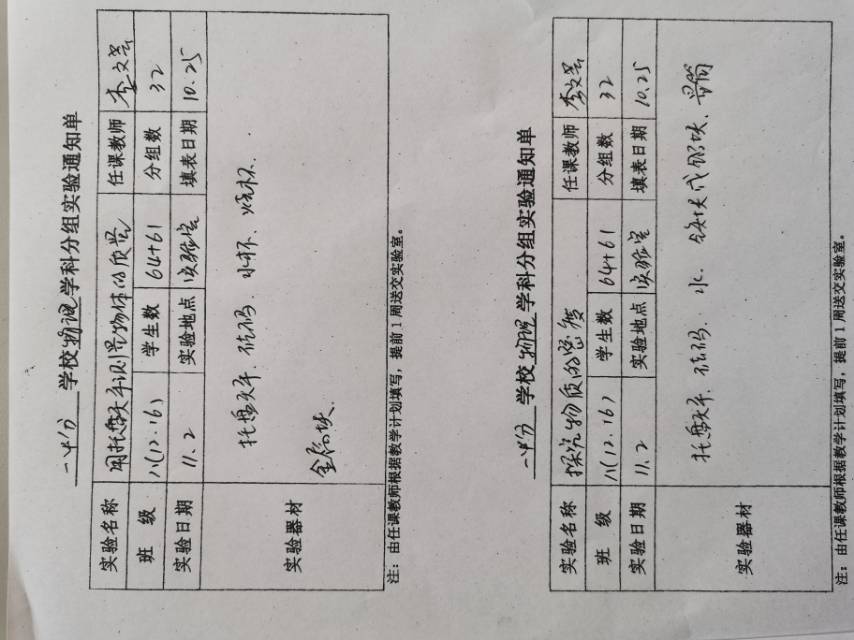 一中分 学校物理学科分组实验通知单
实验名称 用托盘天平测量物体的质量 任课教师 李文芸
班 级 八(12.16) 学生数 64+61 分组数 32
实验日期 11.2 实验地点 实验室 填表日期 10.25
实验器材 托盘天平、砝码、水杯、烧杯、
金属块、
注:由任课教师根据教学计划填写,提前1周送交实验室。
一中分 学校物理学科分组实验通知单
实验名称 探究物质的密度 任课教师 李文芸
班 级 八(12.16) 学生数 64+61 分组数 32
实验日期 11.2 实验地点 实验室 填表日期 10.25
实验器材 托盘天平、砝码、水、铁块代铝块、量筒
注:由任课教师根据教学计划填写,提前1周送交实验室。